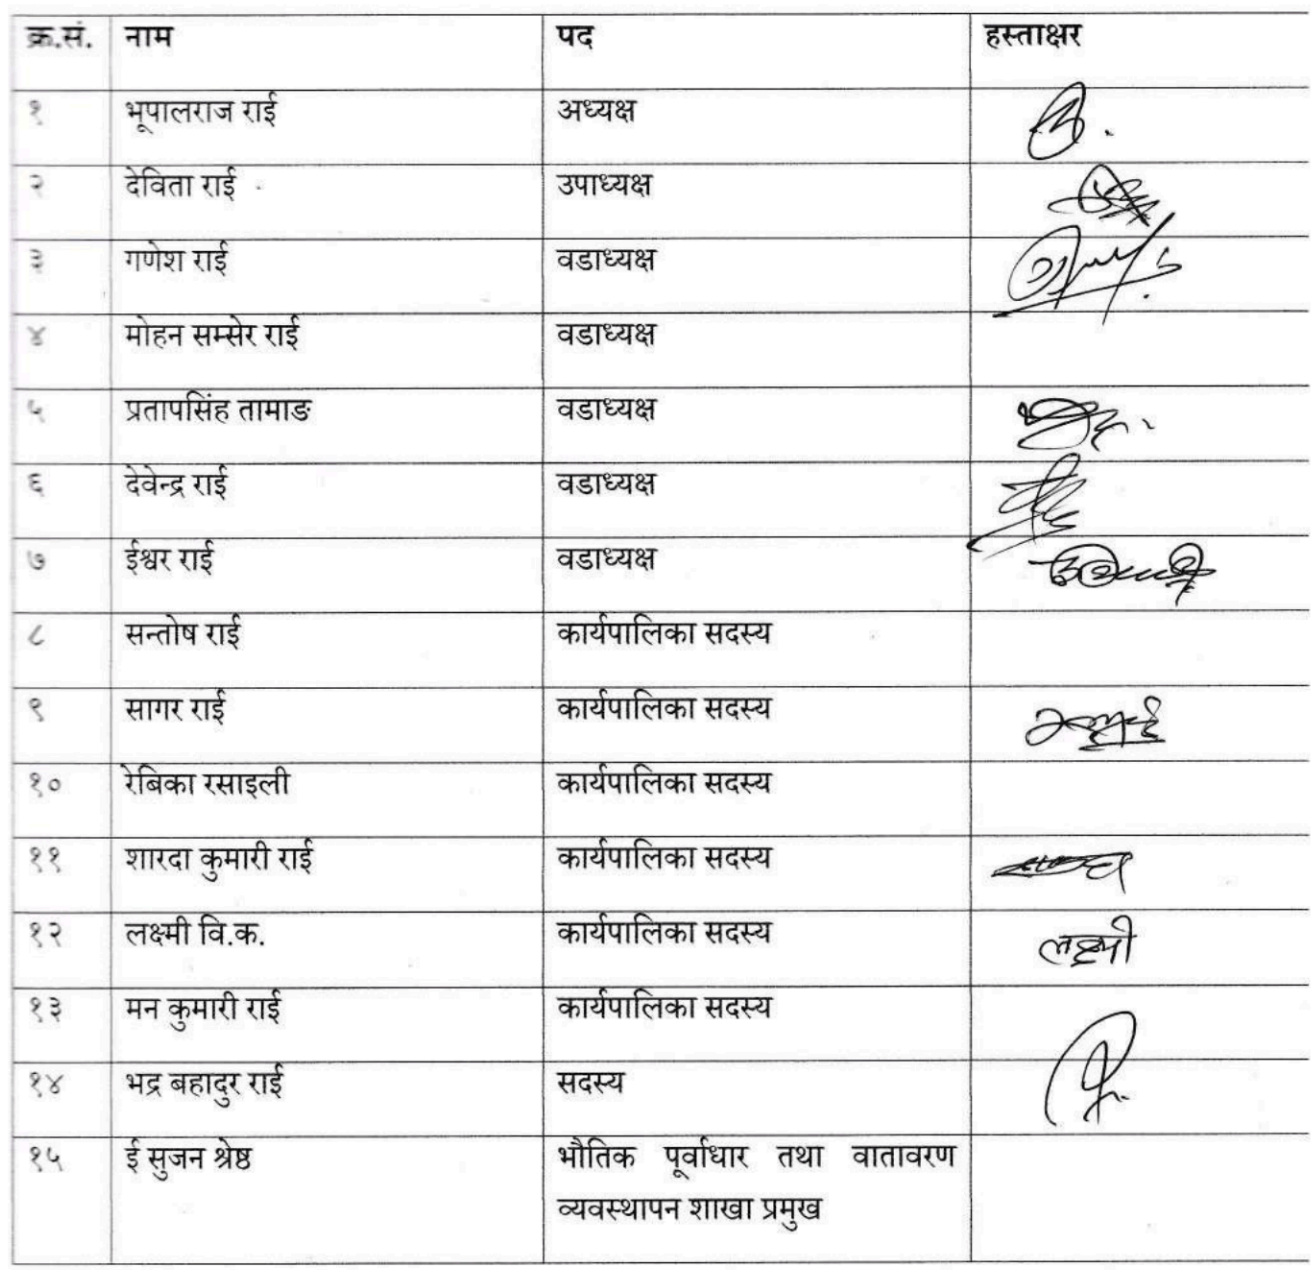 क्र.सं. नाम पद हस्ताक्षर
१ भूपालराज राई अध्यक्ष
२ देविता राई उपाध्यक्ष
३ गणेश राई वडाध्यक्ष
४ मोहन सम्सेर राई वडाध्यक्ष
५ प्रतापसिंह तामाङ वडाध्यक्ष
६ देवेन्द्र राई वडाध्यक्ष
७ ईश्वर राई वडाध्यक्ष
८ सन्तोष राई कार्यपालिका सदस्य
९ सागर राई कार्यपालिका सदस्य
१० रेबिका रसाइली कार्यपालिका सदस्य
११ शारदा कुमारी राई कार्यपालिका सदस्य
१२ लक्ष्मी वि.क. कार्यपालिका सदस्य लक्ष्मी
१३ मन कुमारी राई कार्यपालिका सदस्य
१४ भद्र बहादुर राई सदस्य
१५ ई सुजन श्रेष्ठ भौतिक पूर्वाधार तथा वातावरण
व्यवस्थापन शाखा प्रमुख